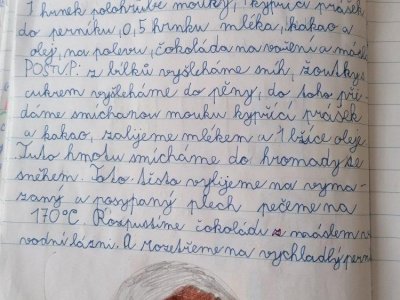 1 hrnek polohrubé mouky, kypřící prášek
do perníku, 0,5 hrnku mléka, kakao a
olej, na polevu, čokoláda na vaření a máslo
POSTUP: z bílků vyšleháme sníh, žoutky s
cukrem vyšleháme do pěny, do toho při-
dáme smíchanou mouku kypřící prášek
a kakao, zalijeme mlékem a 1 lžíce oleje.
Tuto hmotu smícháme do hromady se
sněhem. Toto těsto vylijeme na vyma-
zaný a posypaný plech pečeme na
170°C. Rozpustíme čokoládu s máslem v
vodní lázni. A rozetřeme na vychladlý perní